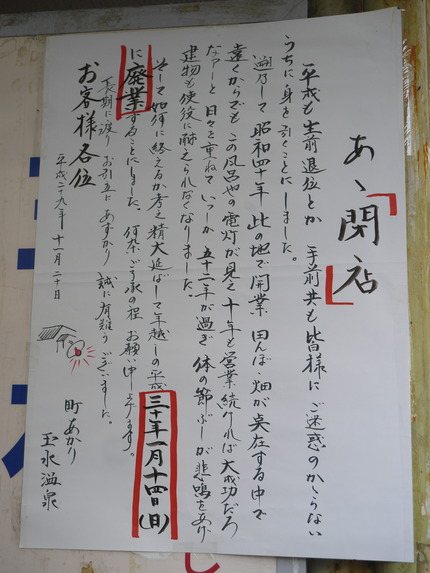 あゝ「閉店」
平成も生前退位とか 手前共も皆様に ご迷惑のかゝらない
うちに身を引くことにしました。
遡乃して 昭和四十年 此の地で開業 田んぼ、畑が点在する中で
遠くからでも この風呂やの電灯が見え 十年も営業続ければ大成功だろ
なァーと 日々を重ねて いつしか 五十二年が過ぎ 体の節ぶしが悲鳴をあげ
建物も使役に耐えられなくなりました。
そして如何に終えるか考え 精大延ばして年越しの 平成三十年一月十四日(日)
に廃業することにしました。何卒ご了承の程 お願い申し上げます。
長期に渡り お引立にあずかり 誠に有難うございました。
お客様各位
平成二十九年 十一月二十日
町あかり
玉水温泉